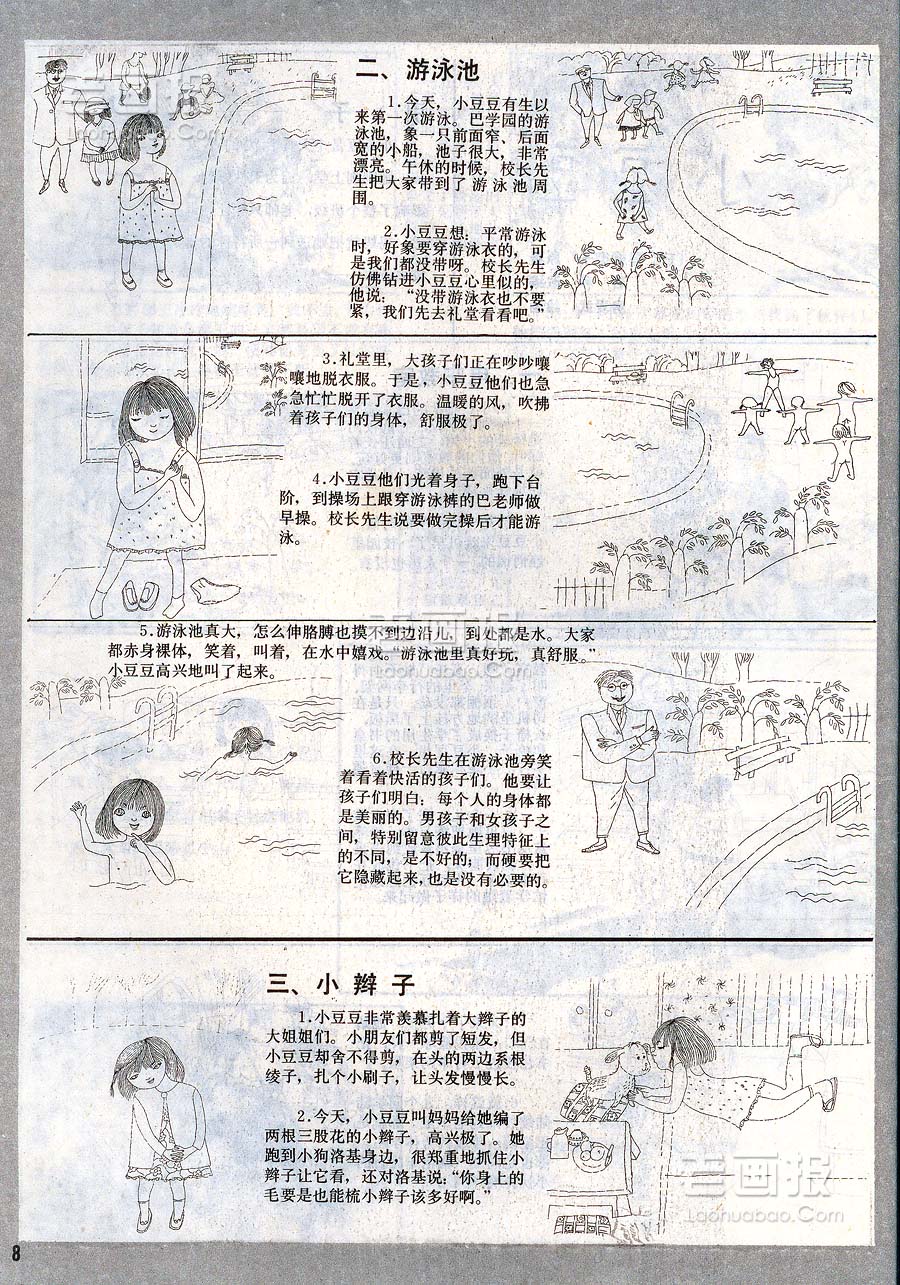 二、游泳池
1.今天，小豆豆有生以
来第一次游泳。巴学园的游
泳池，象一只前面窄、后面
宽的小船，池子很大，非常
漂亮。午休的时候，校长先
生把大家带到了游泳池周
围。
2.小豆豆想：平常游泳
时，好象要穿游泳衣的，可
是我们都没带呀。校长先生
仿佛钻进小豆豆心里似的，
他说：“没带游泳衣也不要
紧，我们先去礼堂看看吧。”
3.礼堂里，大孩子们正在吵吵嚷
嚷地脱衣服。于是，小豆豆他们也急
急忙忙脱开了衣服。温暖的风，吹拂
着孩子们的身体，舒服极了。
4.小豆豆他们光着身子，跑下台
阶，到操场上跟穿游泳裤的巴老师做
早操。校长先生说要做完操后才能游
泳。
5.游泳池真大，怎么伸胳膊也摸不到边沿儿，到处都是水。大家
都赤身裸体，笑着，叫着，在水中嬉戏。“游泳池里真好玩，真舒服。”
小豆豆高兴地叫了起来。
6.校长先生在游泳池旁笑
着看着快活的孩子们。他要让
孩子们明白：每个人的身体都
是美丽的。男孩子和女孩子之
间，特别留意彼此生理特征上
的不同，是不好的；而硬要把
它隐藏起来，也是没有必要的。
三、小辫子
1.小豆豆非常羡慕扎着大辫子的
大姐姐们。小朋友们都剪了短发，但
小豆豆却舍不得剪，在头的两边系根
绫子，扎个小刷子，让头发慢慢长。
2.今天，小豆豆叫妈妈给她编了
两根三股花的小辫子，高兴极了。她
跑到小狗洛基身边，很郑重地抓住小
辫子让它看，还对洛基说：“你身上的
毛要是也能梳小辫子该多好啊。”
老画报
Laohuabao.Com
8